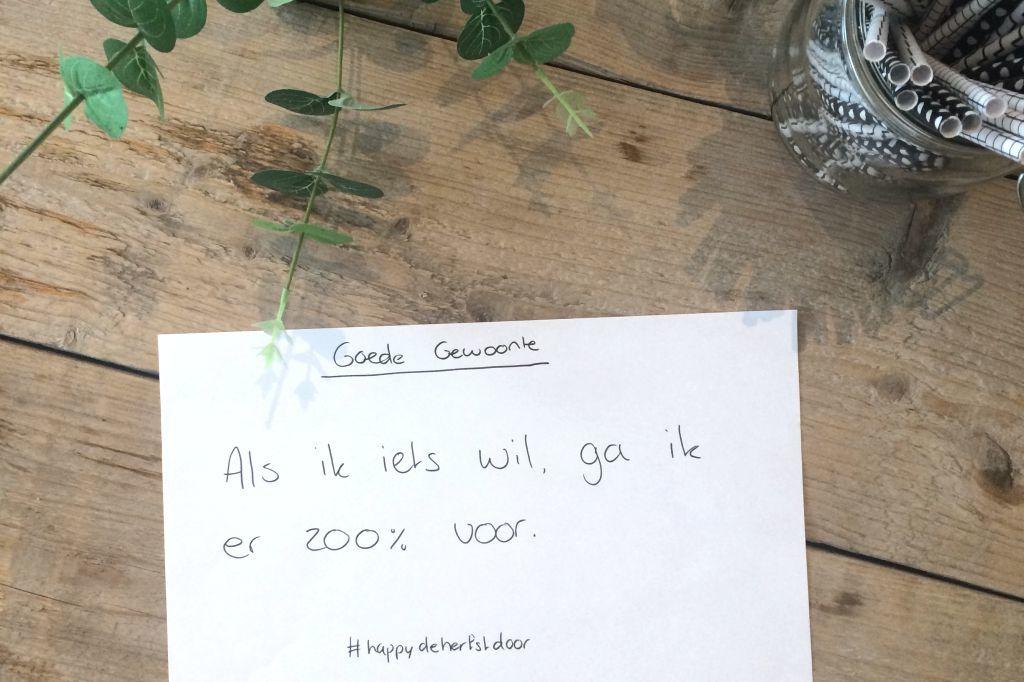 Goede Gewoonte
Als ik iets wil, ga ik
er 200% voor.
#happydeherfstdoor